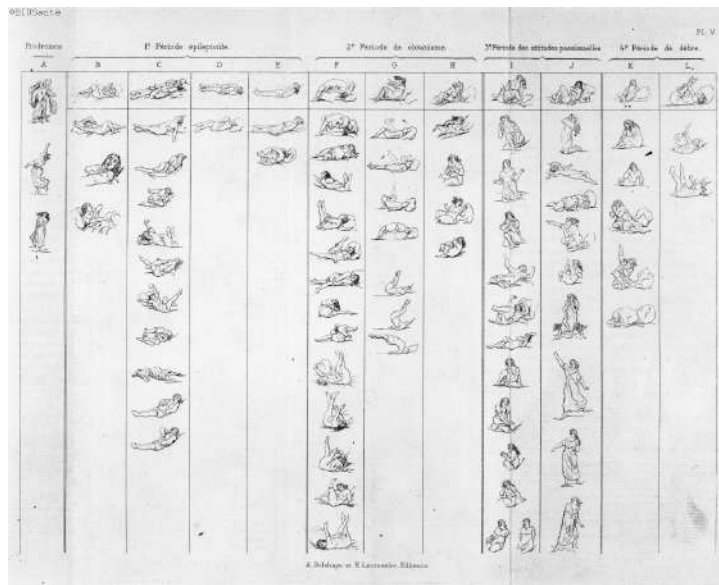 ©BIUSanté
Pl. V
Prodromes
1e Période épileptoïde.
2e Période de clownisme.
3e Période des attitudes passionnelles
4e Période de délire.
A B C D E F G H I J K L.
A. Delahaye et E. Lecrosnier, Éditeurs.